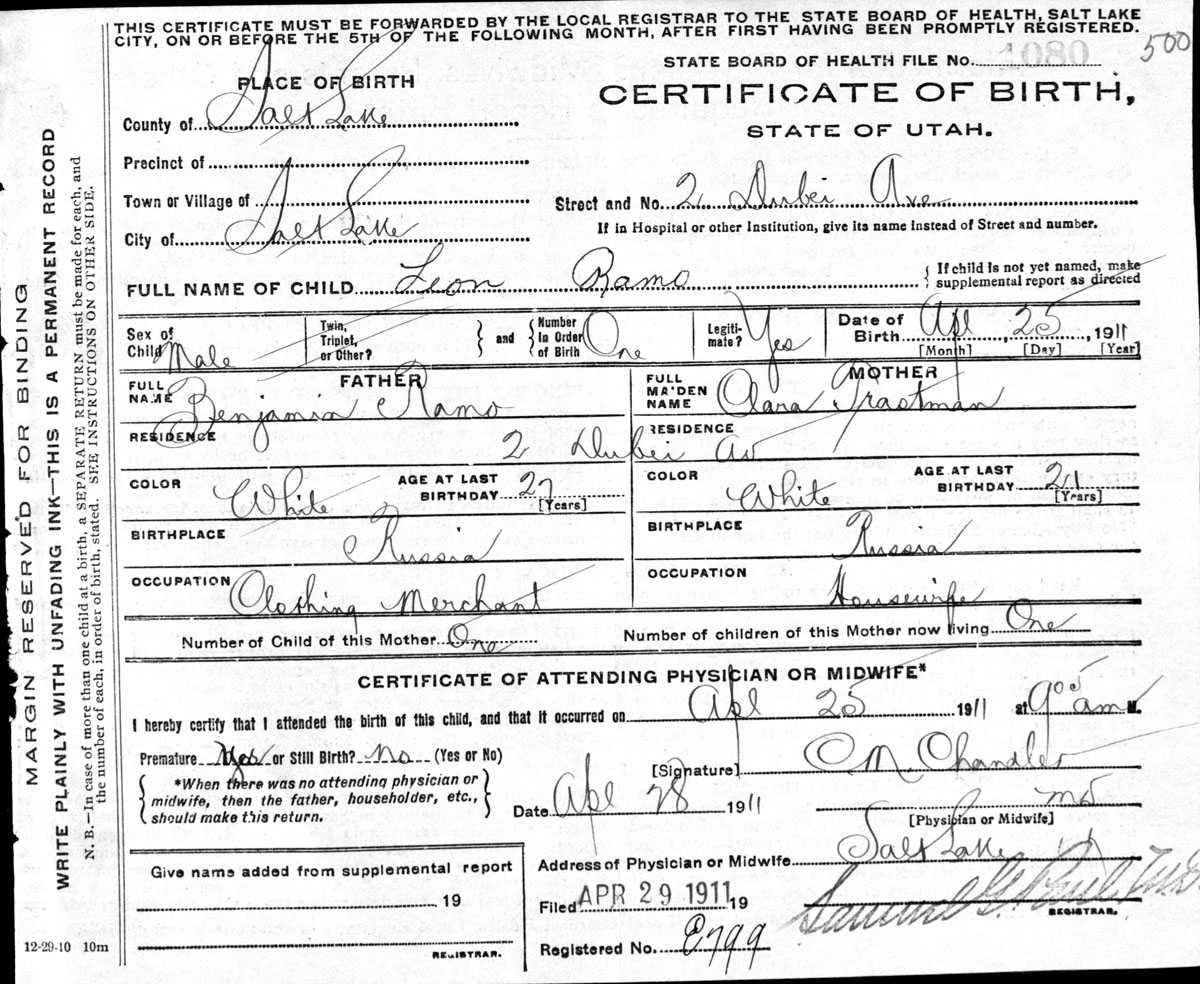 THIS CERTIFICATE MUST BE FORWARDED BY THE LOCAL REGISTRAR TO THE STATE BOARD OF HEALTH, SALT LAKE
CITY, ON OR BEFORE THE 5TH OF THE FOLLOWING MONTH, AFTER FIRST HAVING BEEN PROMPTLY REGISTERED.
500
STATE BOARD OF HEALTH FILE No. 1080
PLACE OF BIRTH
CERTIFICATE OF BIRTH,
STATE OF UTAH.
County of Salt Lake
Precinct of
Town or Village of
Street and No. 2 Dubei Ave
City of Salt Lake
If in Hospital or other Institution, give its name instead of Street and number.
FULL NAME OF CHILD Leon Ramo
{ If child is not yet named, make
supplemental report as directed
Sex of Child Male
Twin, Triplet, or Other?
} and {
Number in Order of Birth One
Legiti-mate? Yes
Date of Birth Apl 25, 1911
[Month] [Day] [Year]
FATHER
FULL NAME Benjamin Ramo
MOTHER
FULL MAIDEN NAME Clara Trastman
RESIDENCE 2 Dubei Av
RESIDENCE
COLOR White
AGE AT LAST BIRTHDAY 27
[Years]
COLOR White
AGE AT LAST BIRTHDAY 21
[Years]
BIRTHPLACE Russia
BIRTHPLACE Russia
OCCUPATION Clothing Merchant
OCCUPATION Housewife
Number of Child of this Mother One
Number of children of this Mother now living One
CERTIFICATE OF ATTENDING PHYSICIAN OR MIDWIFE*
I hereby certify that I attended the birth of this child, and that it occurred on Apl 25 1911 at 9 05 am M.
Premature Yes or Still Birth? No (Yes or No)
{ *When there was no attending physician or
midwife, then the father, householder, etc.,
should make this return. }
[Signature] C M Chandler
Date Apl 28 1911
MD
[Physician or Midwife]
Address of Physician or Midwife Salt Lake
Give name added from supplemental report
19
REGISTRAR.
Filed APR 29 1911 19
REGISTRAR.
Registered No. E799
12-29-10 10m
MARGIN RESERVED FOR BINDING
WRITE PLAINLY WITH UNFADING INK—THIS IS A PERMANENT RECORD
N. B.—In case of more than one child at a birth, a SEPARATE RETURN must be made for each, and
the number of each, in order of birth, stated. SEE INSTRUCTIONS ON OTHER SIDE.